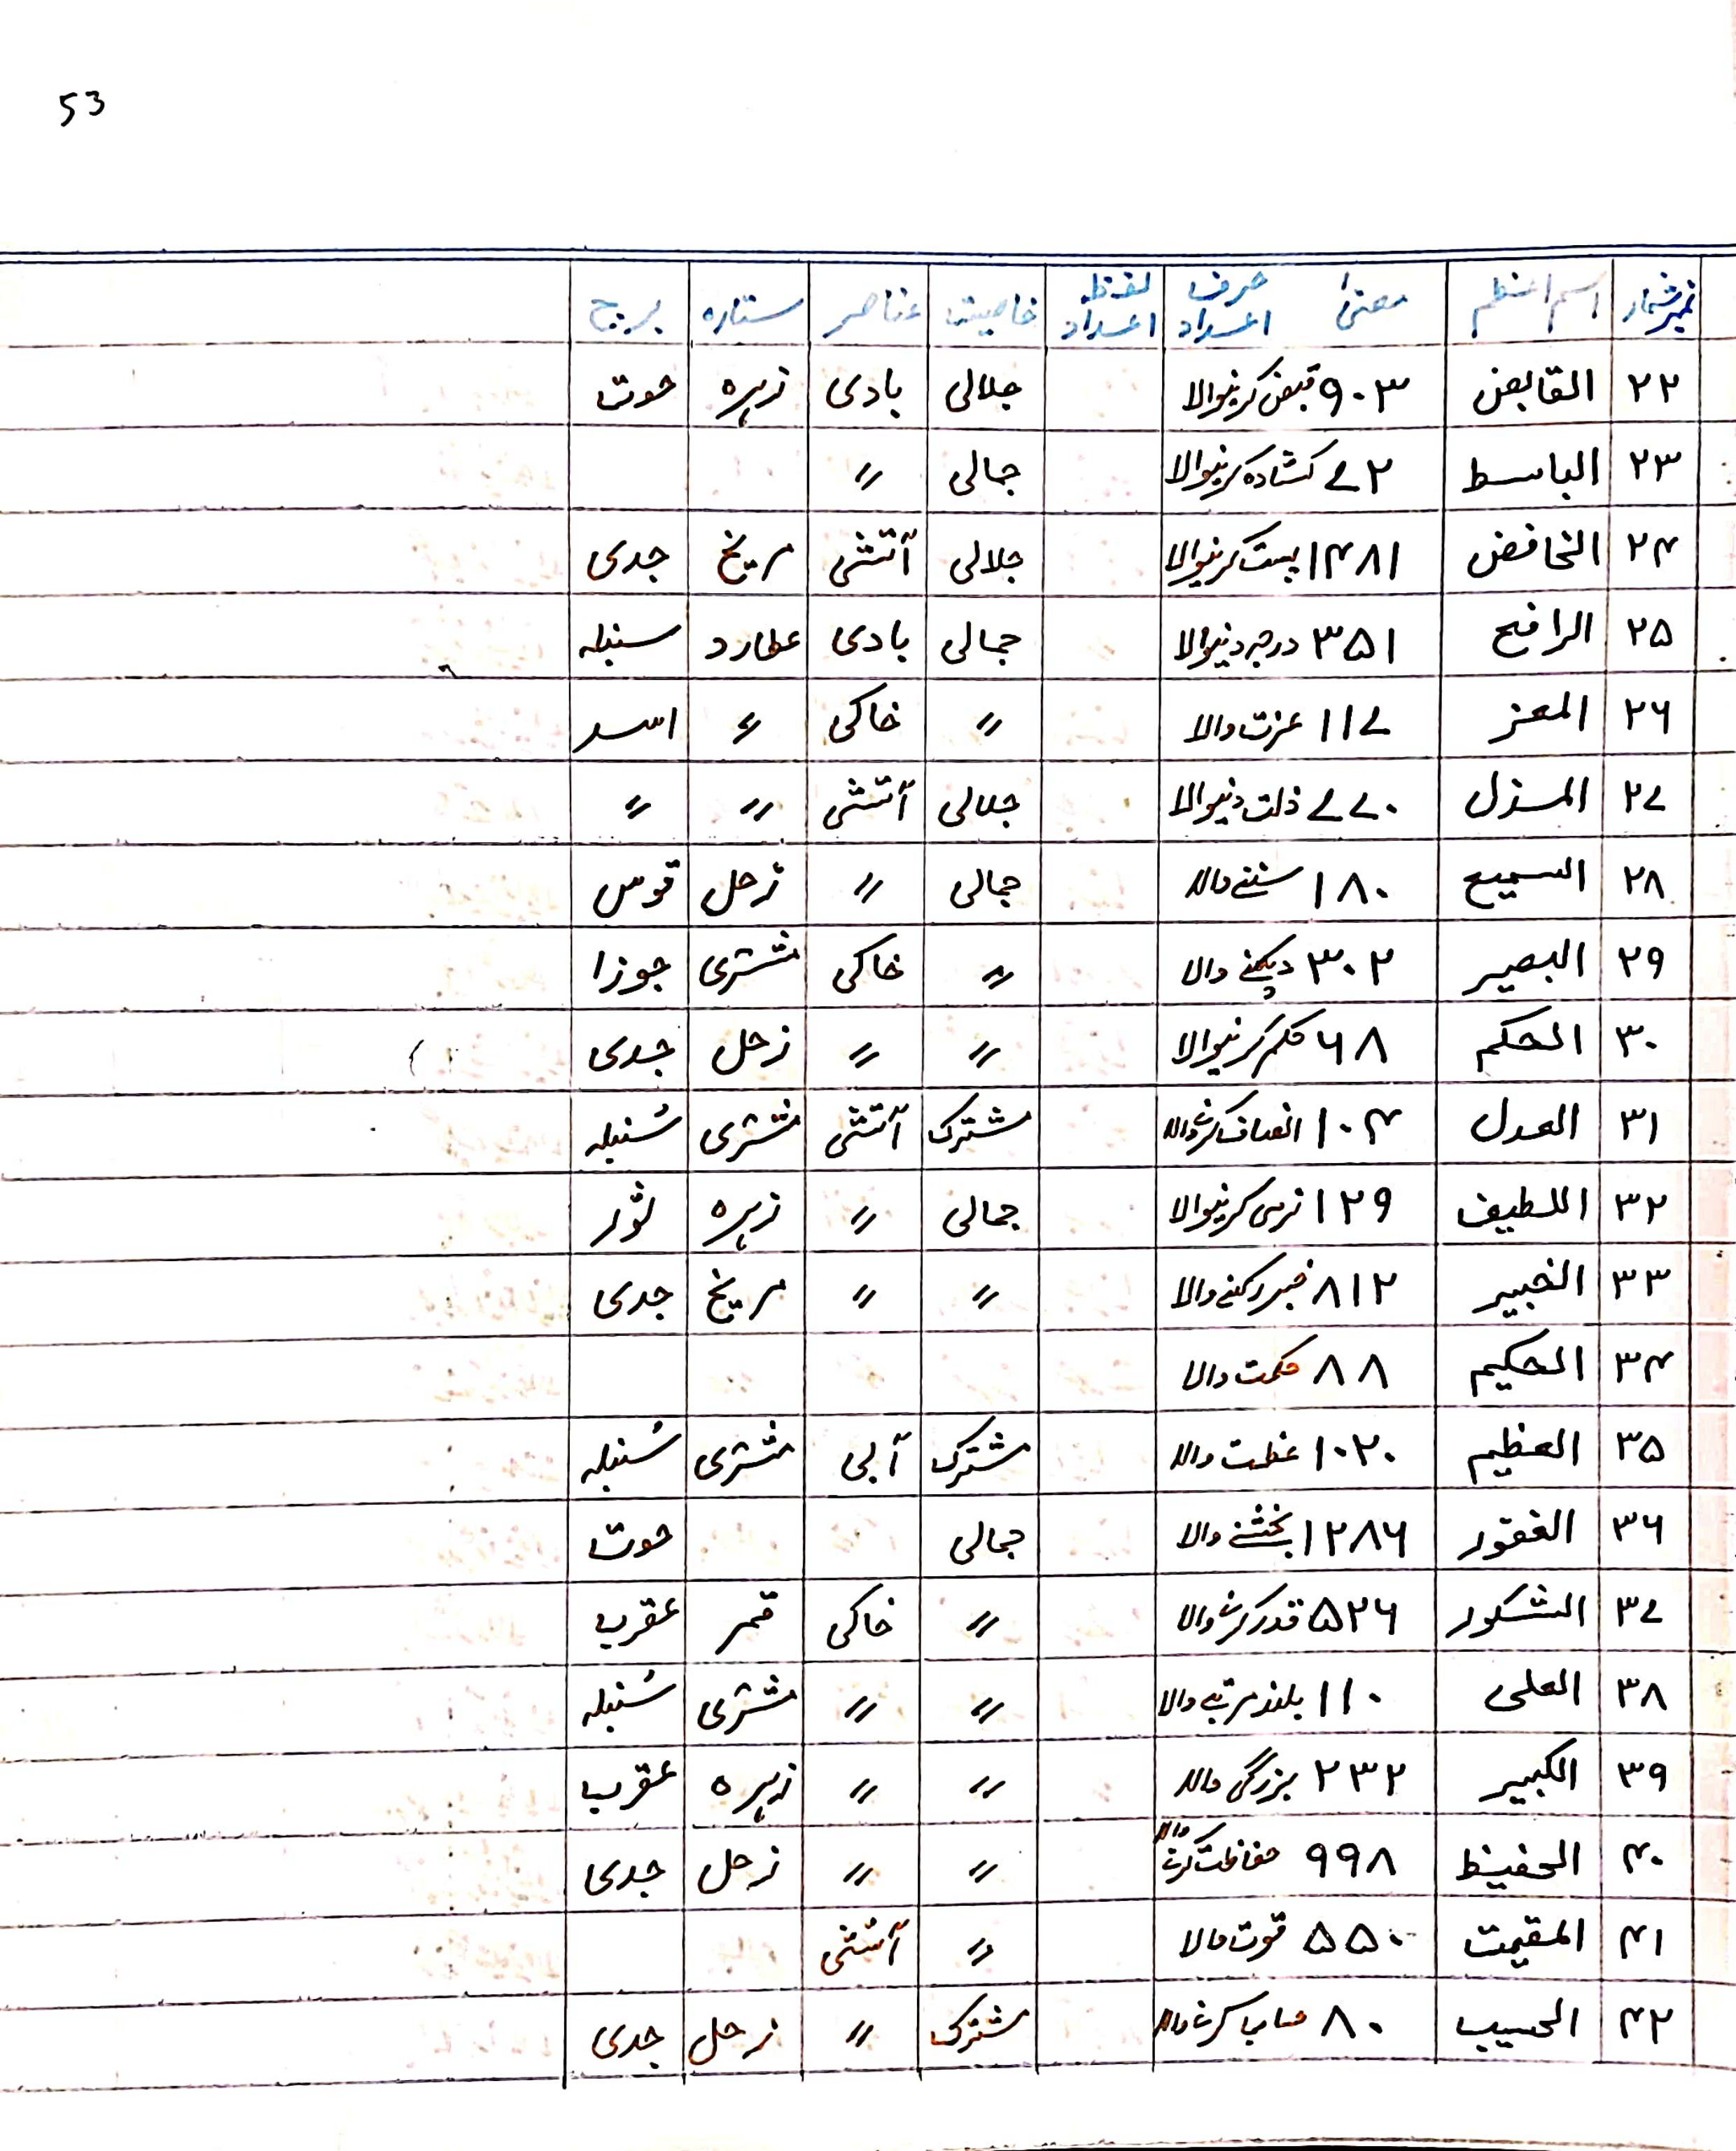 53
نمبر شمار اسم اعظم معنی حرف اعداد لفظ اعداد خاصیت عناصر ستارہ برج
۲۲ القابض ۹۰۳ قبض کرنیوالا جلالی بادی زہرہ حوت
۲۳ الباسط ۷۲ کشادہ کرنیوالا جمالی "
۲۴ الخافض ۱۴۸۱ پست کرنیوالا جلالی آتشی مریخ جدی
۲۵ الرافع ۳۵۱ درجہ دنیوالا جمالی بادی عطارد سنبلہ
۲۶ المعز ۱۱۷ عزت والا " خاکی " اسد
۲۷ المذل ۷۷۰ ذلت دنیوالا جلالی آتشی " "
۲۸ السمیع ۱۸۰ سننے والا جمالی " زحل قوس
۲۹ البصیر ۳۰۲ دیکھنے والا " خاکی مشتری جوزا
۳۰ الحکم ۶۸ حکم کرنیوالا " " زحل جدی
۳۱ العدل ۱۰۴ انصاف کرنے والا مشترک آتشی مشتری سُنبلہ
۳۲ اللطیف ۱۲۹ نرمی کرنیوالا جمالی " زہرہ ثور
۳۳ الخبیر ۸۱۲ خبر رکھنے والا " " مریخ جدی
۳۴ الحکیم ۸۸ حکمت والا
۳۵ العظیم ۱۰۲۰ عظمت والا مشترک آبی مشتری سُنبلہ
۳۶ الغفور ۱۲۸۶ بخشنے والا جمالی حوت
۳۷ الشکور ۵۲۶ قدر کرنے والا " خاکی قمر عقرب
۳۸ العلی ۱۱۰ بلند مرتبے والا " " مشتری سُنبلہ
۳۹ الکبیر ۲۳۲ بزرگی والا " " زہرہ عقرب
۴۰ الحفیظ ۹۹۸ حفاظت کرنے والا " " زحل جدی
۴۱ المقیت ۵۵۰ قوت والا " آتشی
۴۲ الحسیب ۸۰ حساب کرنے والا مشترک " زحل جدی